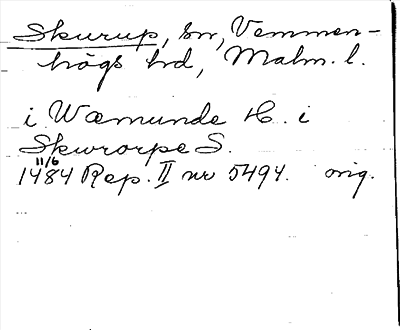 Skurup, sn, Vemmen-
högs hd, Malm. l.
i Wæmunde H. i
Skworpe S.
11/6
1484 Rep. II nr 5494. orig.